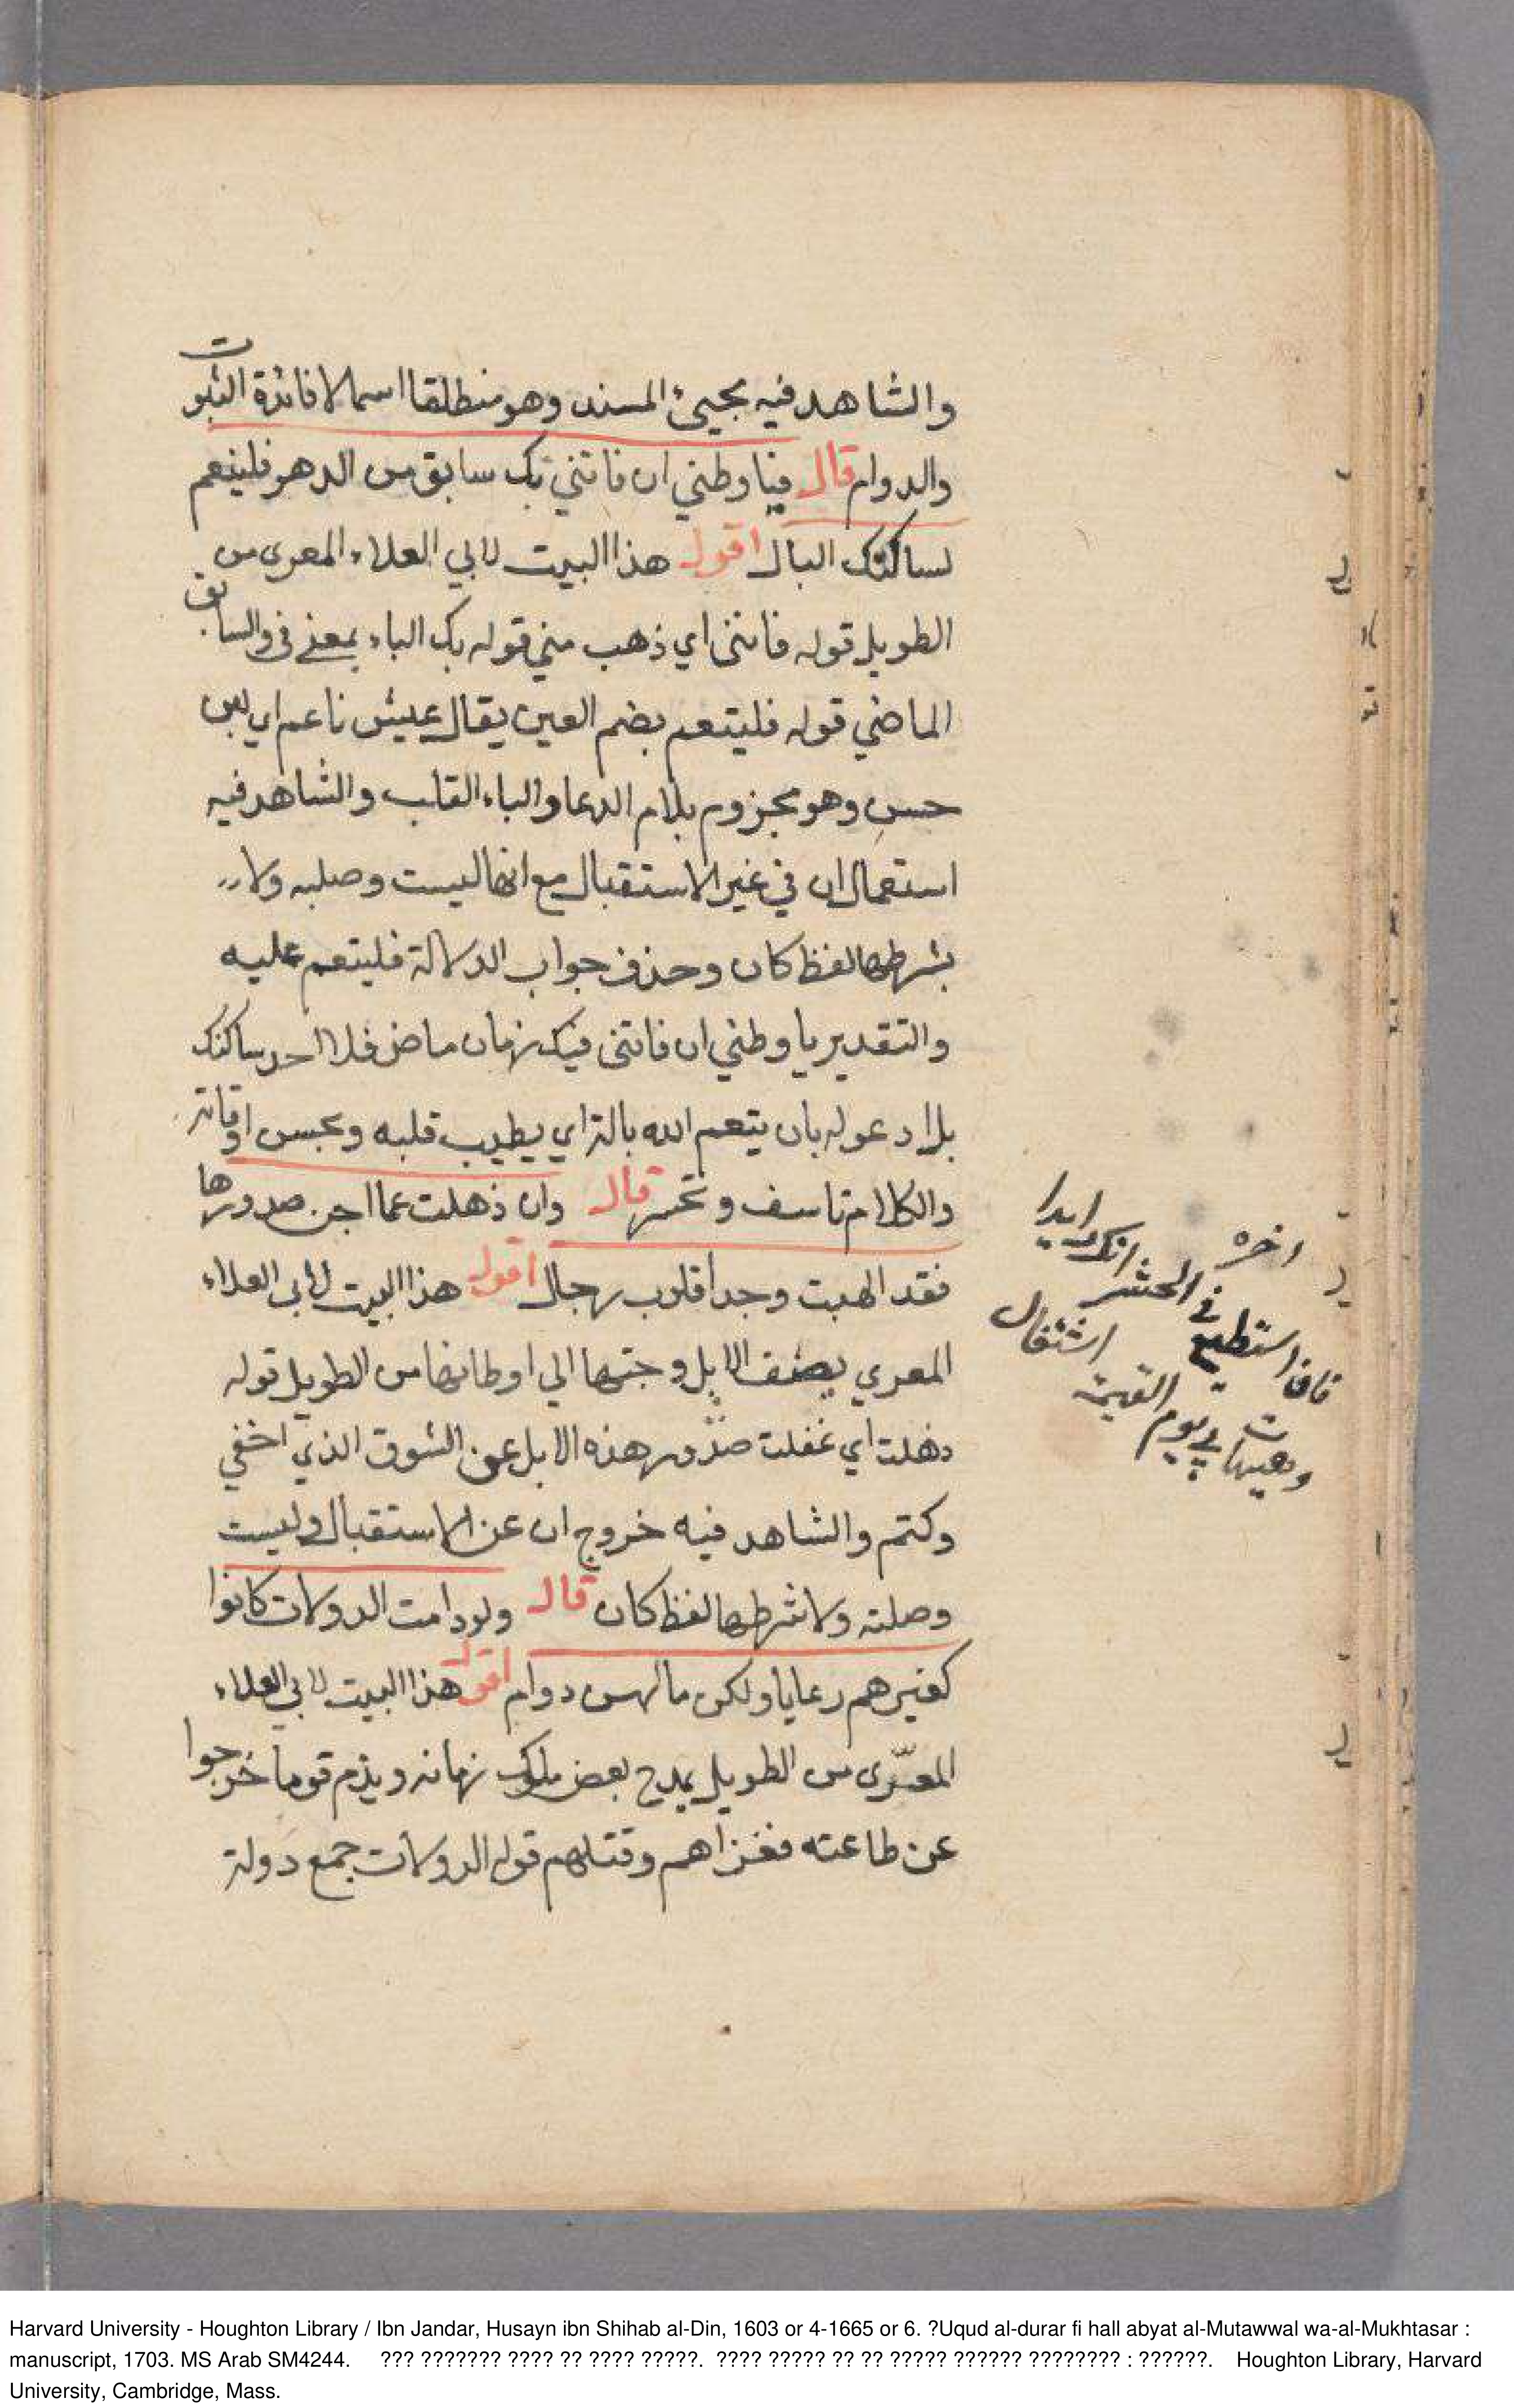 والشاهد فيه مجيئ المسند وهو منطلقا اسما لافائدة الثبوت
والدوام قال فيا وطني ان فاتني بك سابق من الدهر فلينعم
لساكنك البال اقول هذا البيت لابي العلاء المعرى من
الطويل قوله فاتنى اي ذهب مني قوله بك الباء بمعنى فى والسابق
الماضي قوله فليتعم بضم العين يقال عيش ناعم اي
حسن وهو مجزوم بلام الدعا والباء القلب والشاهد فيه
استعمال ان في غير الاستقبال مع انها ليست وصليه ولا
بشرطها لفظ كان وحذف جواب الدلالة فليتعم عليه
والتقدير يا وطني ان فاتنى فيك زمان ماض فلا ساكنك
بل ادعو له بان يتعم الله باله اي يطيب قلبه ويحسن اوقاته
والكلام تاسف وتحسر قال وان ذهلت عما اجن صدورها
فقد الهبت وجدا قلوب رجال اقول هذا البيت لابى العلاء
المعري يصف الابل وحتها الي اوطانها من الطويل قوله
ذهلت اي غفلت صدور هذه الابل عن الشوق الذي اخفي
وكتم والشاهد فيه خروج ان عن الاستقبال وليست
وصلته ولا شرطها لفظ كان قال ولو دامت الدولات كانوا
كغيرهم رعايا ولكن ما لهن دوام اقول هذا البيت لابي العلاء
المعرّى من الطويل يمدح بعض ملوك زمانه ويذم قوما خرجوا
عن طاعته فغزاهم وقتلهم قوله الدولات جمع دولة
اخره
فان استطع في الحشر
وهيهات لي يوم القيمة اشتغال
Harvard University - Houghton Library / Ibn Jandar, Husayn ibn Shihab al-Din, 1603 or 4-1665 or 6. ?Uqud al-durar fi hall abyat al-Mutawwal wa-al-Mukhtasar :
manuscript, 1703. MS Arab SM4244. ??? ??????? ???? ?? ???? ?????. ???? ????? ?? ?? ????? ?????? ???????? : ??????. Houghton Library, Harvard
University, Cambridge, Mass.